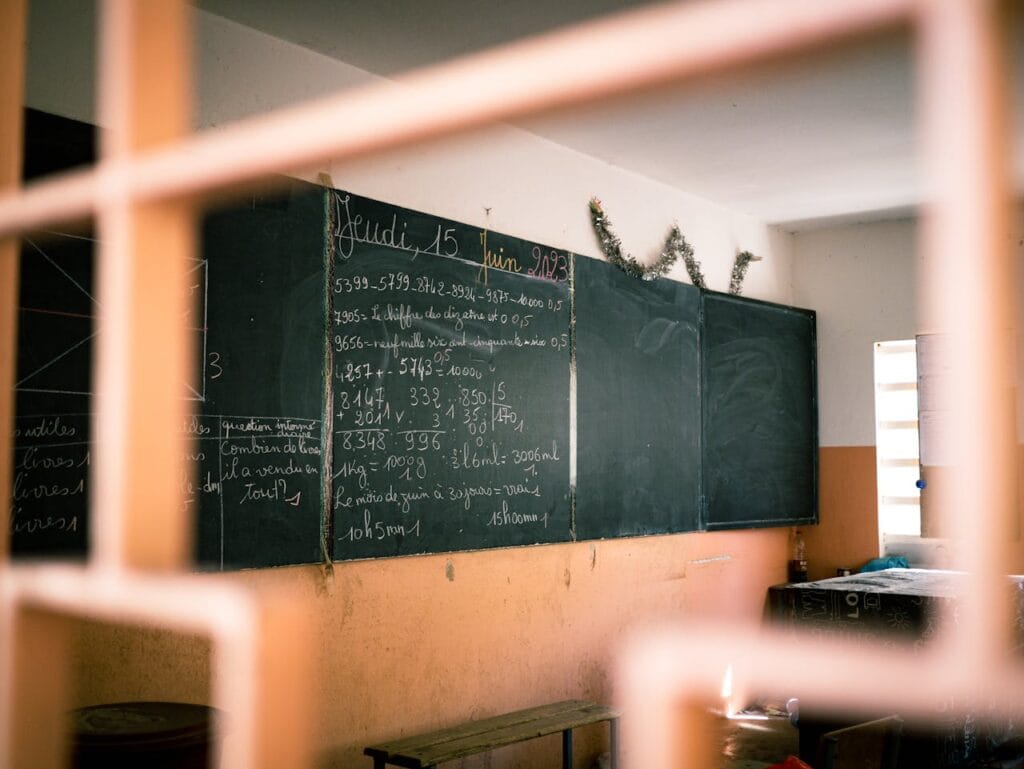 Jeudi, 15 Juin 2023
5399-5799-8742-8924-9875-10000 0,5
7905= Le chiffre des dizaine est 0 0,5
9656= neuf mille six cent-cinquante-six 0,5
4257 + - 5743 = 10000 0,5
8147 332 850 5
+ 201 1 × 3 1 35 170 1
8348 996 00
0
1Kg = 1000g 3l6ml = 3006ml
1 1
Le mois de juin à 30 jours = vrai 1
10h5mn 1 15h00mn 1
3
utiles question intermé
diaire
livres 1 Combien de livres
livres 1 il a vendu en
livres 1 tout? 1
LO